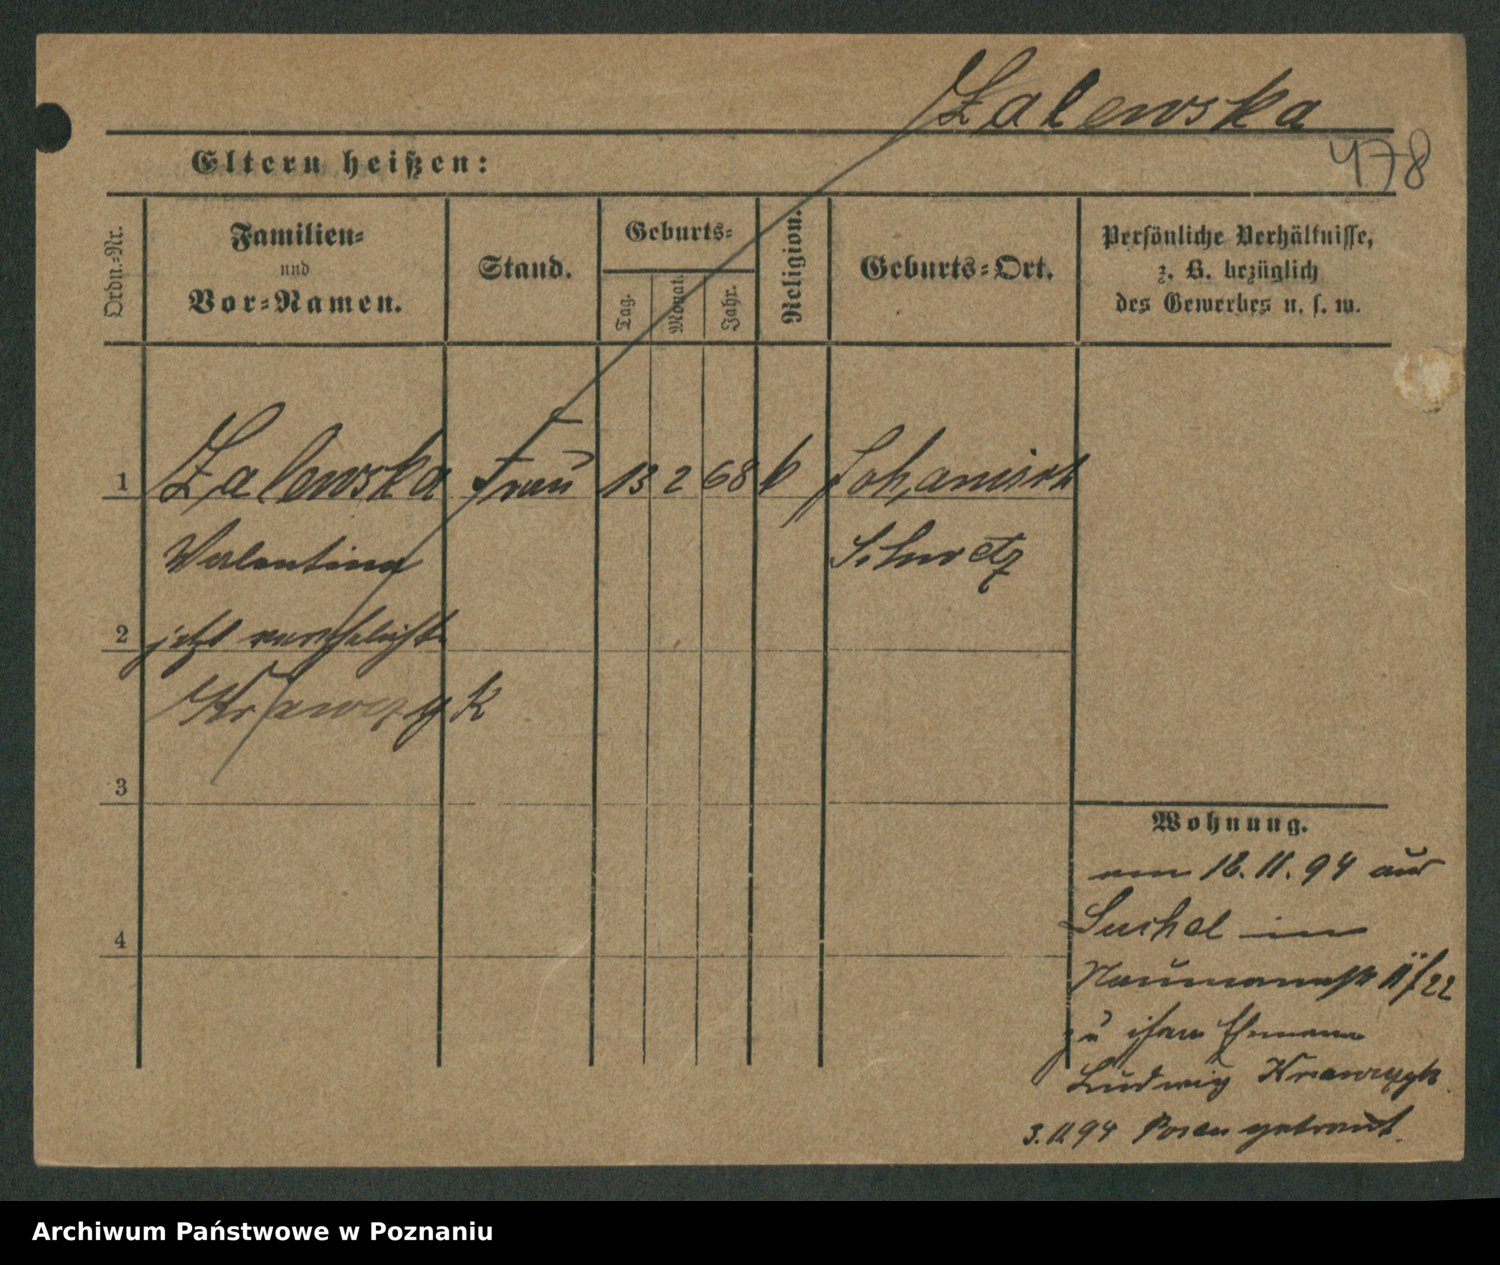 Zalewska
478
Eltern heißen:
Ordn.-Nr.
Familien-
und
Vor-Namen.
Stand.
Geburts-
Tag.
Monat.
Jahr.
Religion.
Geburts-Ort.
Persönliche Verhältnisse,
z. B. bezüglich
des Gewerbes u. s. w.
1 Zalewska Frau 13 2 68 k
Valentina Schwetz
2 jetzt verehelichte
Krawczyk
3
4
Wohnung.
am 18.11.94 aus
Suchel in
Naumannstr II/22
zu ihrem Ehemann
Ludwig Krawczyk
3.11.94 Posen getraut.
Archiwum Państwowe w Poznaniu